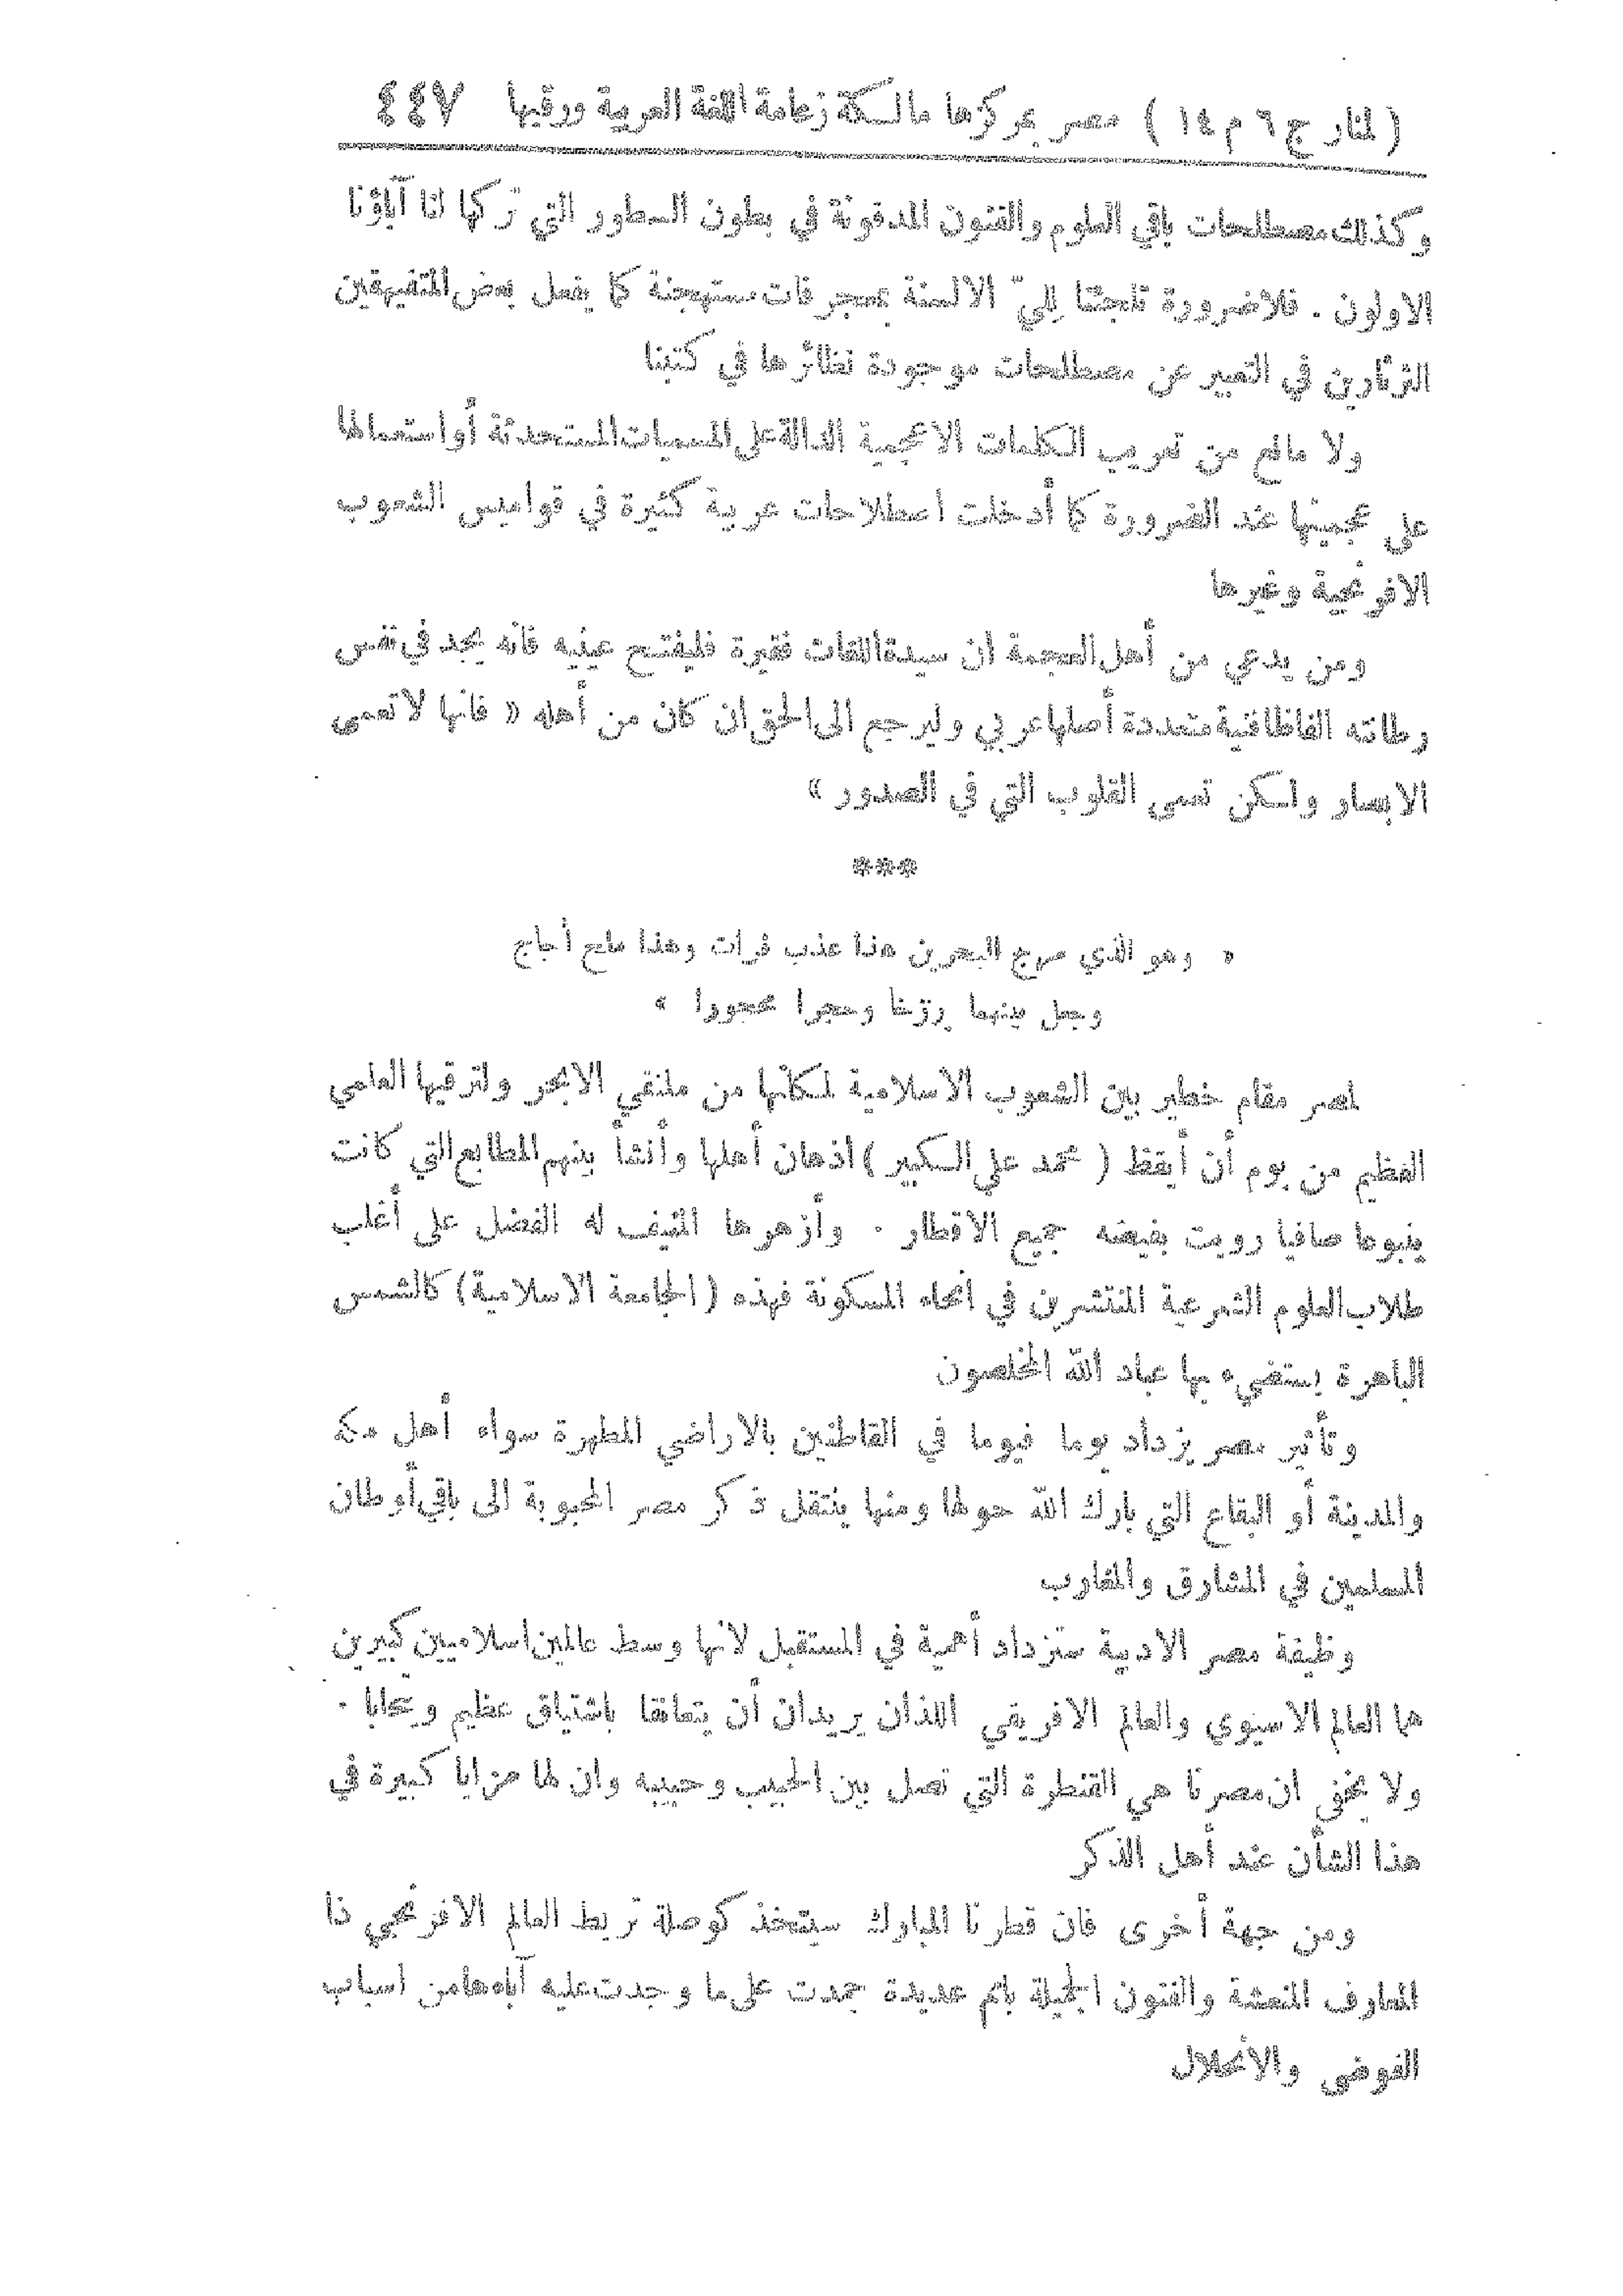 ( المنار ج ٦ م ١٤ ) مصر بمركزها مالكة زعامة اللغة العربية ورقيها ٤٤٧
وكذلك مصطلحات باقي العلوم والفنون المدفونة في بطون السطور التي تركها لنا آباؤنا
الاولون . فلا ضرورة تلجئنا لليّ الالسنة بعجرفات مستهجنة كما يفعل بعض المتفيهقين
الثرثارين في التعبير عن مصطلحات موجودة نظائرها في كتبنا
ولا مانع من تعريب الكلمات الاعجمية الدالة على المسميات المستحدثة أو استعمالها
على عجميتها عند الضرورة كما أدخلت اصطلاحات عربية كثيرة في قواميس الشعوب
الافرنجية وغيرها
ومن يدعي من أهل العجمة ان سيدة اللغات فقيرة فليفتح عينيه فانه يجد في نفس
رطانته الفاظا فنية متعددة أصلها عربي وليرجع الى الحق ان كان من أهله « فانها لا تعمى
الابصار ولكن تعمى القلوب التي في الصدور »
***
« وهو الذي مرج البحرين هذا عذب فرات وهذا ملح أجاج
وجعل بينهما برزخا وحجرا محجورا »
لمصر مقام خطير بين الشعوب الاسلامية لمكانها من ملتقي الابحر ولترقيها العلمي
العظيم من يوم أن أيقظ ( محمد علي الكبير ) اذهان أهلها وأنشأ بينهم المطابع التي كانت
ينبوعا صافيا رويت بفيضه جميع الاقطار . وأزهرها المنيف له الفضل على أغلب
طلاب العلوم الشرعية المنتشرين في انحاء المسكونة فهذه ( الجامعة الاسلامية ) كالشمس
الباهرة يستضيء بها عباد الله المخلصون
وتأثير مصر يزداد يوما فيوما في القاطنين بالاراضي المطهرة سواء أهل مكة
والمدينة أو البقاع التي بارك الله حولها ومنها ينتقل ذكر مصر المحبوبة الى باقي أوطان
المسلمين في المشارق والمغارب
وظيفة مصر الادبية ستزداد أهمية في المستقبل لانها وسط عالمين اسلاميين كبيرين
هما العالم الاسيوي والعالم الافريقي اللذان يريدان أن يتعانقا باشتياق عظيم ويتحابا .
ولا يخفى ان مصرنا هي القنطرة التي تصل بين الحبيب وحبيبه وان لها مزايا كبيرة في
هذا الشأن عند أهل الذكر
ومن جهة أخرى فان قطرنا المبارك سيتخذ كوصلة تربط العالم الافرنجي ذا
المعارف المنعشة والفنون الجميلة بامم عديدة جمدت على ما وجدت عليه آباءها من اسباب
الفوضى والانحلال